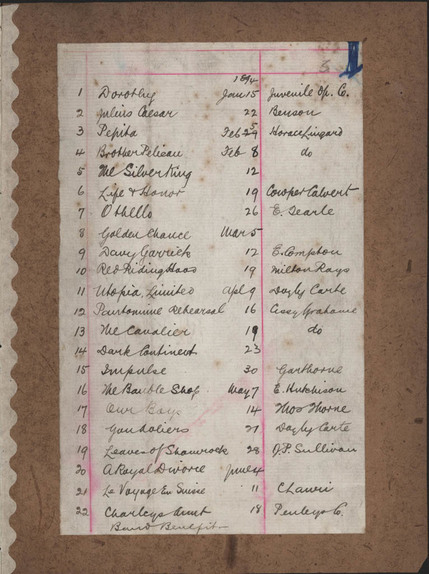 1
1894
1 Dorothy Jan 15 Juvenile Op. Co.
2 Julius Caesar 22 Benson
3 Pepita Feb 5 Horace Lingard
4 Brother Pelican Feb 8 do
5 The Silver King 12
6 Life & Honor 19 Cowper Calvert
7 Othello 26 E. Tearle
8 Golden Chance Mar 5
9 Davy Garrick 12 E. Compton
10 Red Riding Hood 19 Milton Rays
11 Utopia Limited Apl 9 Dayly Carte
12 Pantomime Rehearsal 16 Cissy Grahame
13 The Cavalier 19 do
14 Dark Continent 23
15 Impulse 30 Garthorne
16 The Bauble Shop May 7 E. Hutchison
17 Our Boys 14 Thos Thorne
18 Gondoliers 21 Dayly Carte
19 Leaves of Shamrock 28 J.P. Sullivan
20 A Royal Divorce June 4
21 Le Voyage En Suisse 11
22 Charleys Aunt 18 Penleys C.
Band Benefit